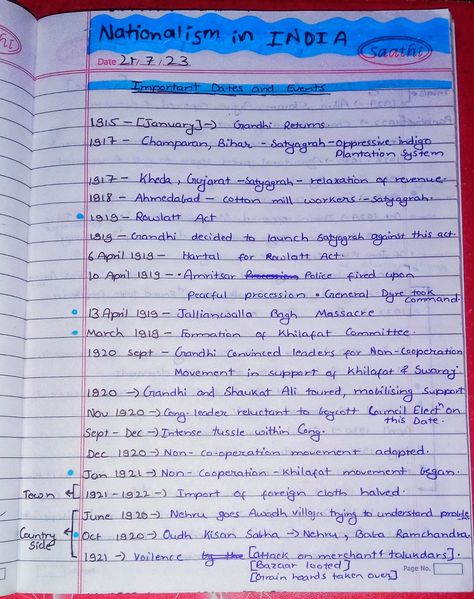 Nationalism in INDIA
saathi
Date 21.7.23
Important Dates and Events
1915 - [January] → Gandhi Returns.
1917 - Champaran, Bihar - Satyagrah - Oppressive indigo
Plantation System
1917 - Kheda, Gujarat - Satyagrah - relaxation of revenue.
1918 - Ahmedabad - cotton mill workers - Satyagrah.
1919 - Rowlatt Act
1919 - Gandhi decided to launch Satyagrah against this act.
6 April 1919 - Hartal for Rowlatt Act.
10 April 1919 - • Amritsar Procession Police fired upon
peaceful procession • General Dyre took
command.
13 April 1919 - Jallianwalla Bagh Massacre
March 1919 - Formation of Khilafat Committee.
1920 Sept - Gandhi Convinced leaders for Non-Cooperation
Movement in support of Khilafat & Swaraj
1920 → Gandhi and Shaukat Ali toured, mobilising support
Nov 1920 → Cong. leader reluctant to boycott Council Electⁿ on
this Date.
Sept - Dec → Intense tussle within Cong.
Dec 1920 → Non Co-operation movement adopted.
Jan 1921 → Non-Cooperation-Khilafat movement began.
Town
1921-1922 → Import of foreign cloth halved.
June 1920 → Nehru goes Awadh village trying to understand
Country side
Oct 1920 → Oudh Kisan Sabha → Nehru, Baba Ramchandra
1921 → Voilence [attack on merchant & talukdars].
[Bazaar looted]
[Grain hoards taken over]
Page No.